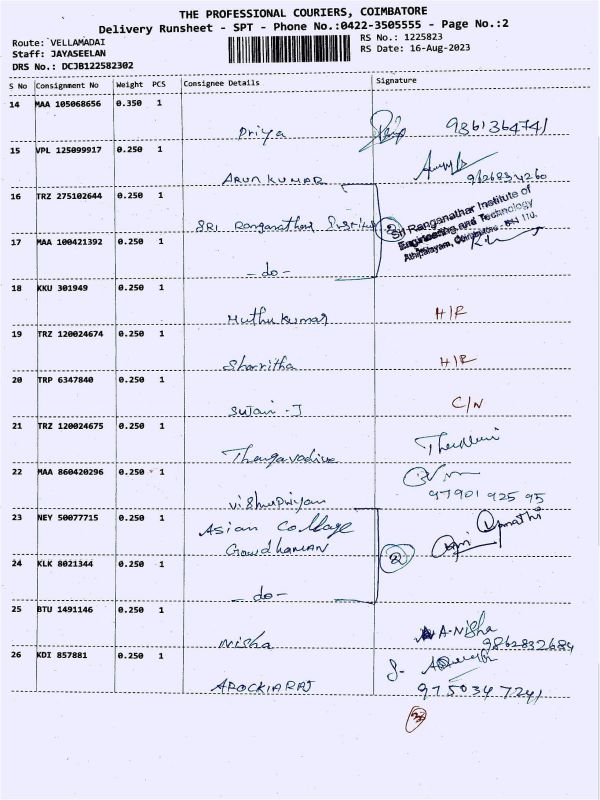 THE PROFESSIONAL COURIERS, COIMBATORE
Delivery Runsheet - SPT - Phone No.:0422-3505555 - Page No.:2
Route: VELLAMADAI
RS No.: 1225823
Staff: JAYASEELAN
RS Date: 16-Aug-2023
DRS No.: DCJB122582302
S No Consignment No Weight PCS Consignee Details Signature
14 MAA 105068656 0.350 1
Priya 9361364741
15 VPL 125099917 0.250 1
ARUN KUMAR 9126834260
16 TRZ 275102644 0.250 1
SRI Ranganathar 2
Sri Ranganathar Institute of
Engineering and Technology
Athipalayam, Coimbatore - 641 110.
17 MAA 100421392 0.250 1
- do -
18 KKU 301949 0.250 1
Muthu kumar H/R
19 TRZ 120024674 0.250 1
Sharritha H/R
20 TRP 6347840 0.250 1
Sujain - J C/N
21 TRZ 120024675 0.250 1
Thangavadiva
22 MAA 860420296 0.250 1
Vishnupriyan 97901 925 95
23 NEY 50077715 0.250 1
Asian College
Gowdhaman
24 KLK 8021344 0.250 1
2
- do -
25 BTU 1491146 0.250 1
Nisha A-Nisha
9862832684
26 KDI 857881 0.250 1
AROCKIARAJ 9750347241